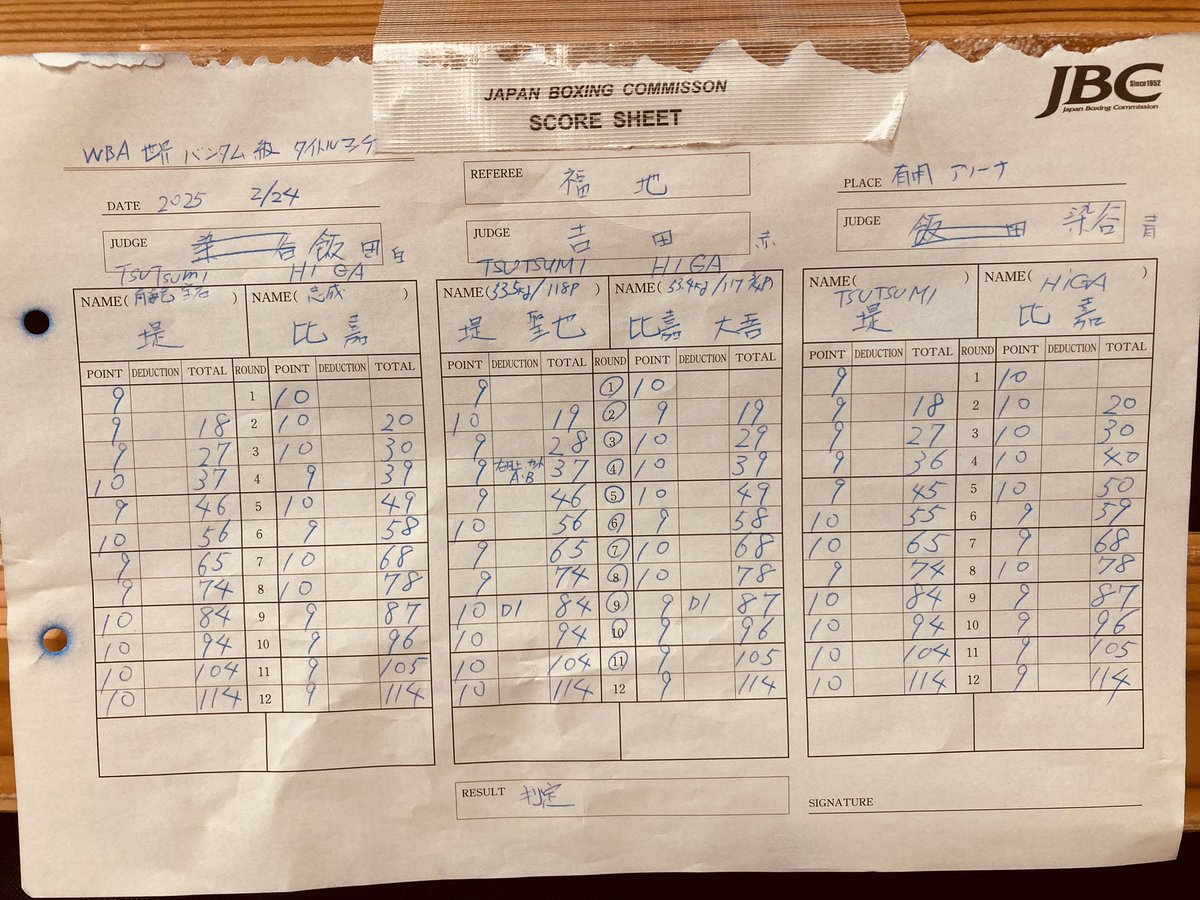 JAPAN BOXING COMMISSON
SCORE SHEET
JBC
Since1952
Japan Boxing Commission
WBA 世界 バンタム級 タイトルマッチ
DATE 2025 2/24
REFEREE 福地
PLACE 有明 アリーナ
JUDGE 飯田 白
JUDGE 吉田 赤
JUDGE 飯田 染谷 青
TSUTSUMI HIGA
NAME( 角海老宝石 ) NAME( 志成 )
堤 比嘉
TSUTSUMI HIGA
NAME( 53.5kg/118P ) NAME( 53.4kg/117 3/4P )
堤 聖也 比嘉 大吾
NAME( ) NAME( )
TSUTSUMI HIGA
堤 比嘉
POINT DEDUCTION TOTAL ROUND POINT DEDUCTION TOTAL
9 1 10
9 18 2 10 20
9 27 3 10 30
10 37 4 9 39
9 46 5 10 49
10 56 6 9 58
9 65 7 10 68
9 74 8 10 78
10 84 9 9 87
10 94 10 9 96
10 104 11 9 105
10 114 12 9 114
POINT DEDUCTION TOTAL ROUND POINT DEDUCTION TOTAL
9 1 10
10 19 2 9 19
9 28 3 10 29
9 A·B 37 4 10 39
9 46 5 10 49
10 56 6 9 58
9 65 7 10 68
9 74 8 10 78
10 D1 84 9 9 D1 87
10 94 10 9 96
10 104 11 9 105
10 114 12 9 114
POINT DEDUCTION TOTAL ROUND POINT DEDUCTION TOTAL
9 1 10
9 18 2 10 20
9 27 3 10 30
9 36 4 10 40
9 45 5 10 50
10 55 6 9 59
10 65 7 9 68
9 74 8 10 78
10 84 9 9 87
10 94 10 9 96
10 104 11 9 105
10 114 12 9 114
RESULT 判定
SIGNATURE